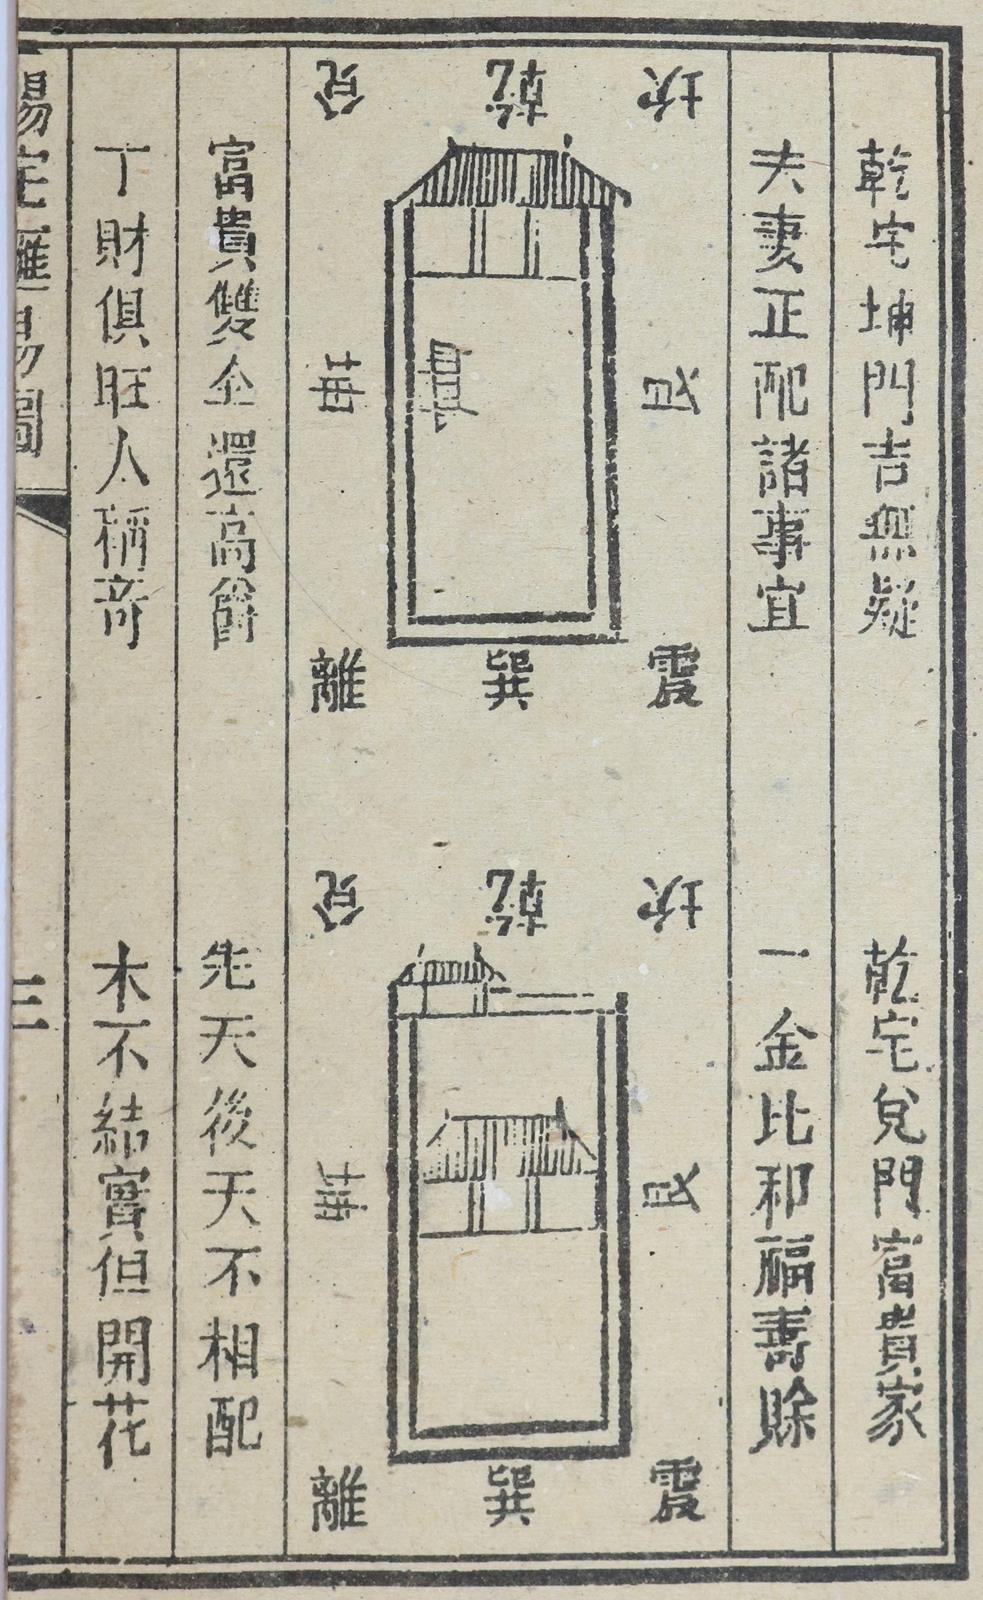 乾宅坤門吉無疑
夫妻正配諸事宜
坎
乾
兌
艮
坤
震
巽
離
富貴雙全還高爵
丁財俱旺人稱奇
乾宅兌門富貴家
一金比和福壽賒
坎
乾
兌
艮
坤
震
巽
離
先天後天不相配
木不結實但開花
三